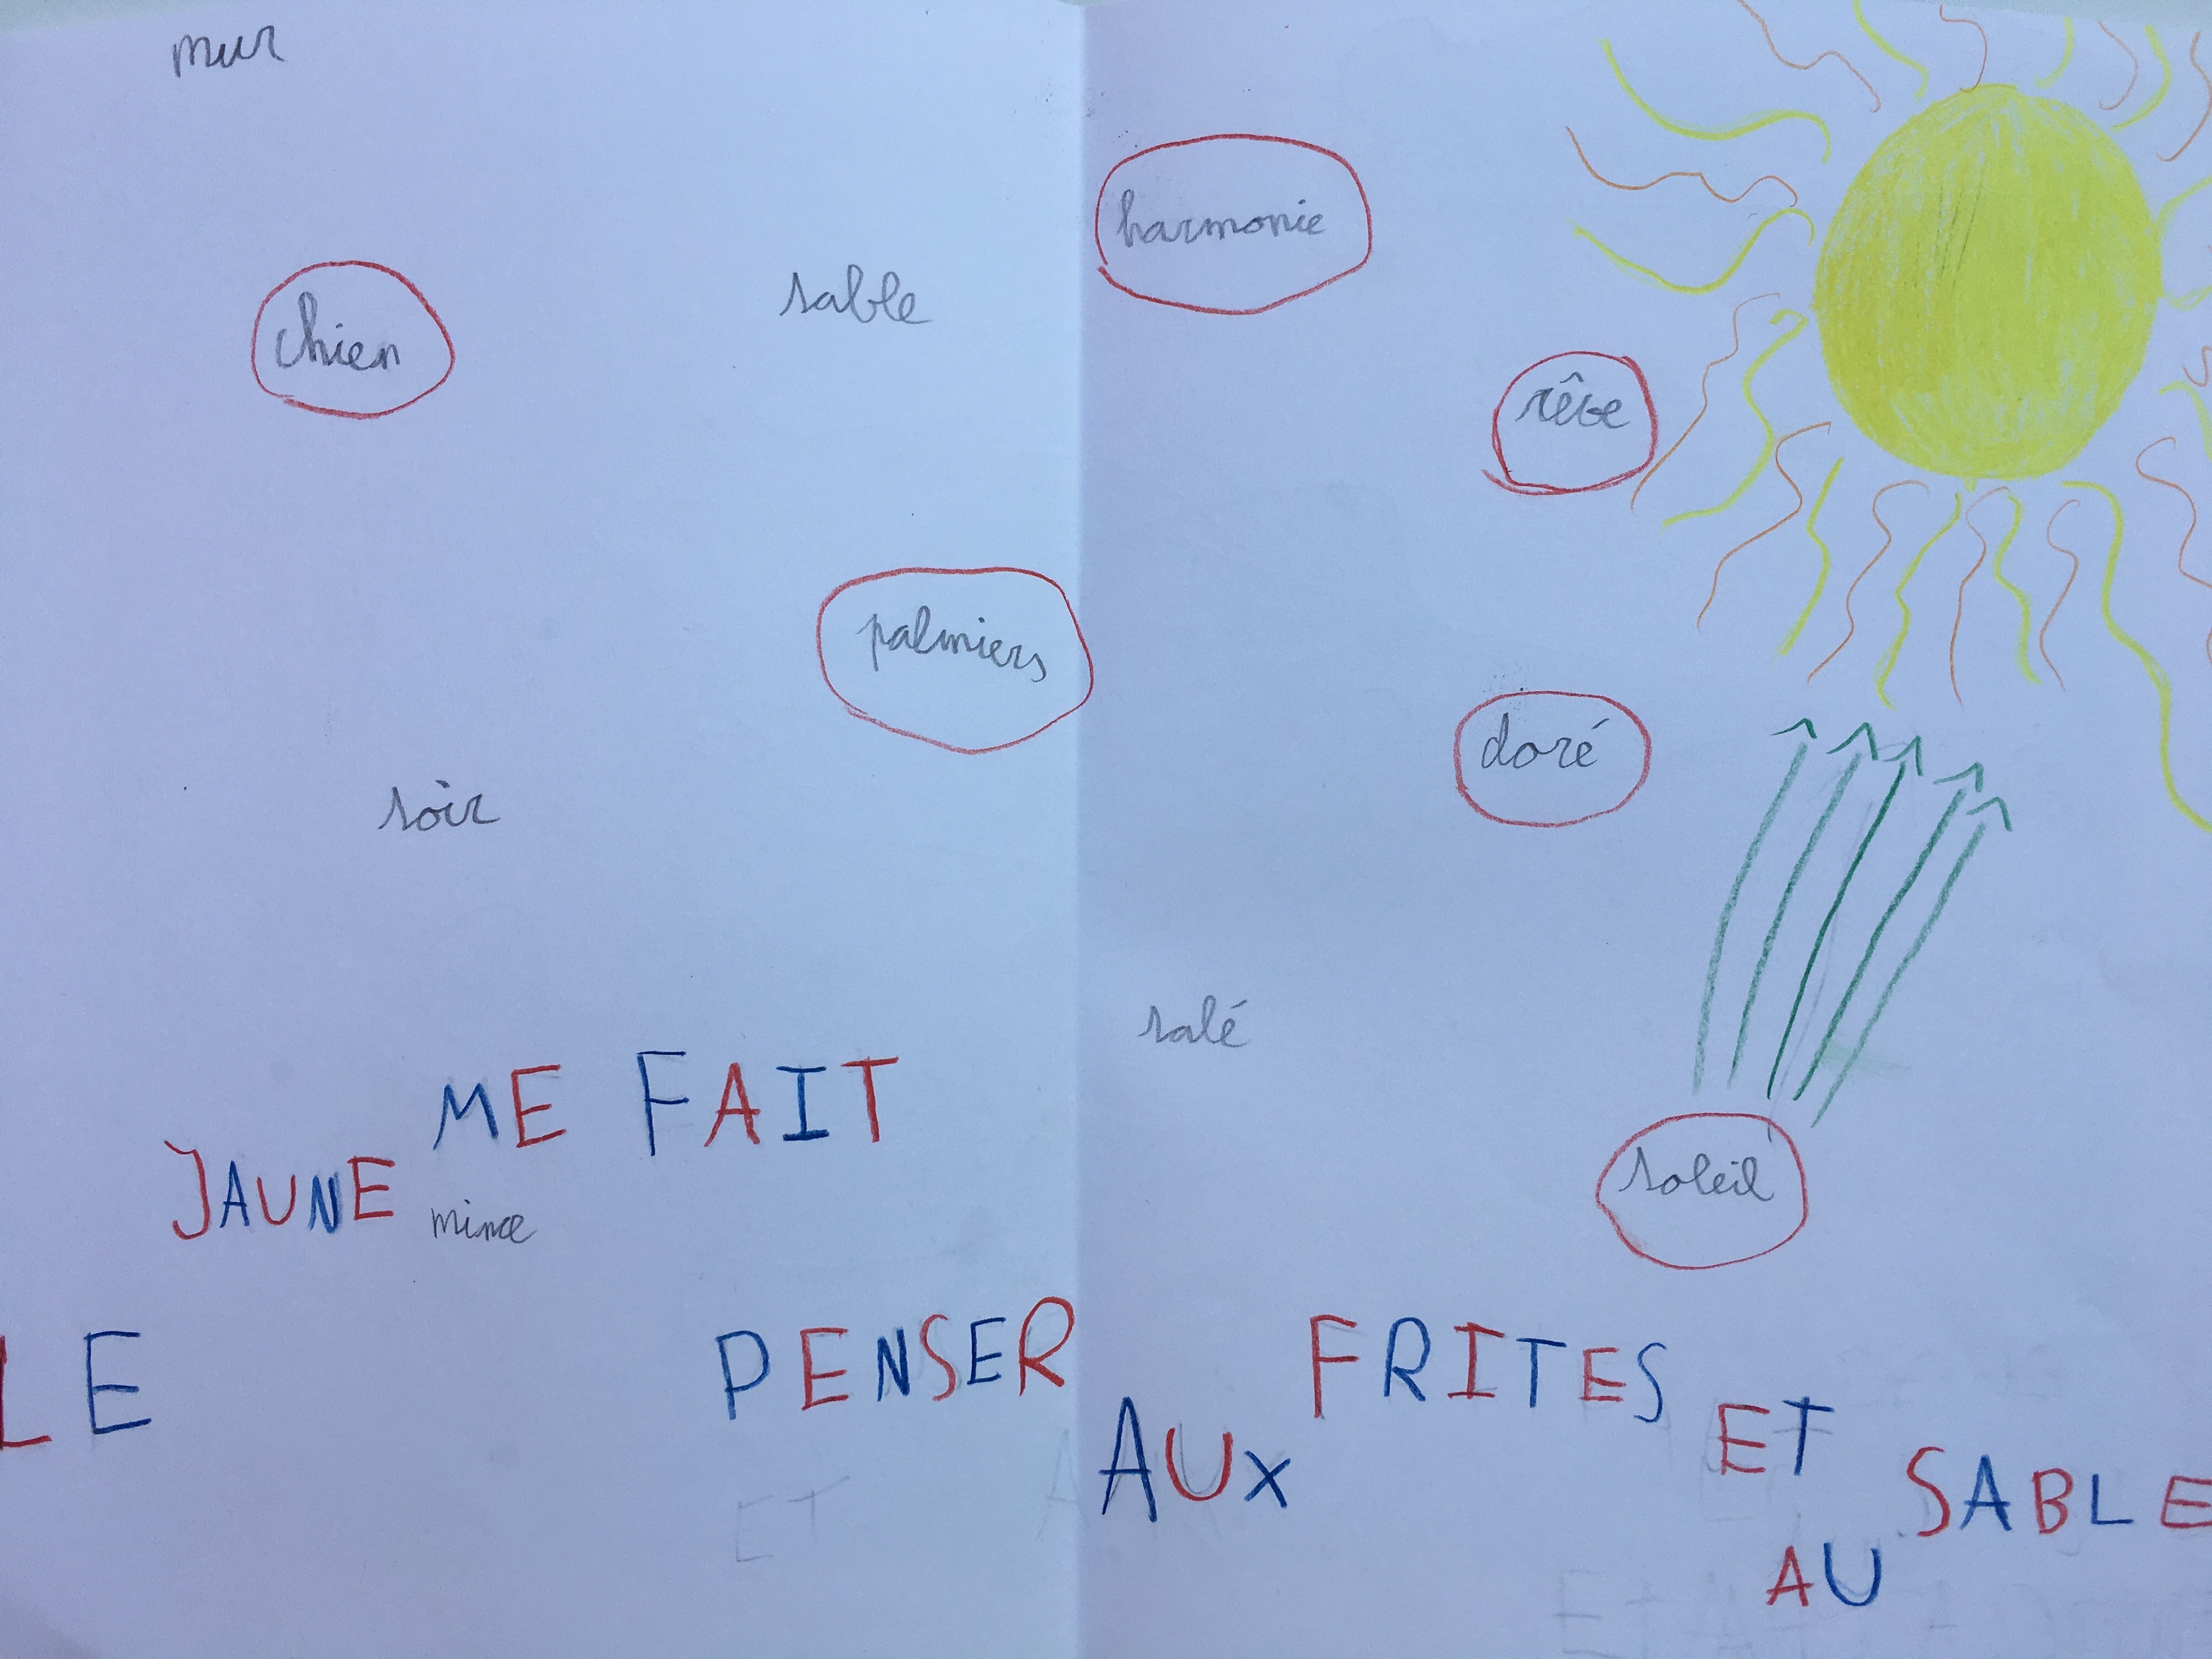 mur
harmonie
sable
chien
rêve
palmiers
doré
soir
salé
soleil
mince
LE JAUNE ME FAIT PENSER AUX FRITES ET AU SABLE
ET